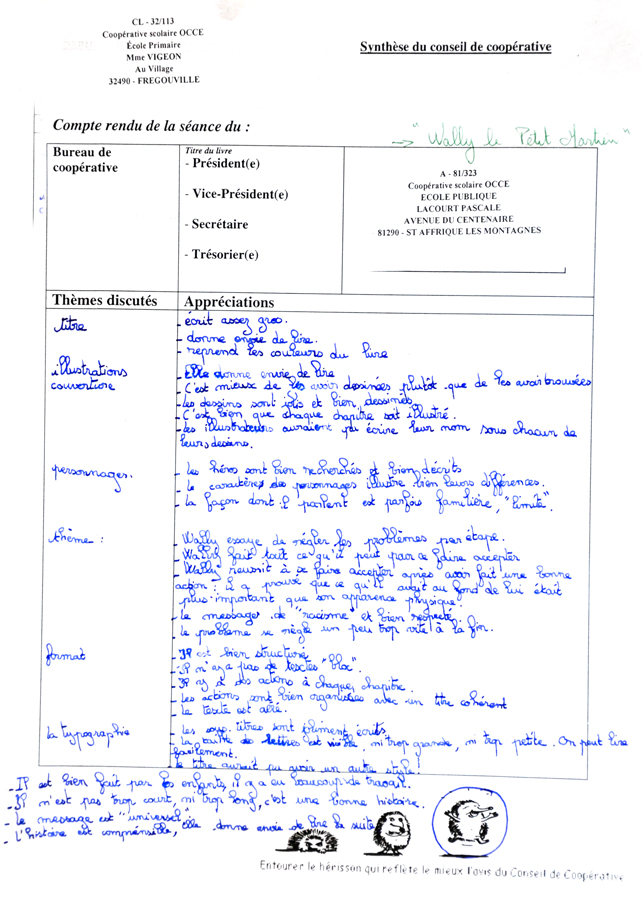 CL - 32/113
Coopérative scolaire OCCE
École Primaire
Mme VIGEON
Au Village
32490 - FREGOUVILLE
Synthèse du conseil de coopérative
Compte rendu de la séance du :
→ "Wally le Petit Martien"
Bureau de coopérative
Titre du livre
- Président(e)
- Vice-Président(e)
- Secrétaire
- Trésorier(e)
A - 81/323
Coopérative scolaire OCCE
ECOLE PUBLIQUE
LACOURT PASCALE
AVENUE DU CENTENAIRE
81290 - ST AFFRIQUE LES MONTAGNES
Thèmes discutés
Appréciations
titre
- écrit assez gros.
- donne envie de lire.
- reprend les couleurs du livre
illustrations
couverture
- Elle donne envie de lire
- C'est mieux de les avoir dessinées plutôt que de les avoir trouvées
- Les dessins sont jolis et bien dessinés
- C'est bien que chaque chapitre soit illustré.
- Les illustrateurs auraient pu écrire leur nom sous chacun de
leurs dessins.
personnages.
- Les héros sont bien recherchés et bien décrits
- Le caractères des personnages illustre bien leurs différences.
- La façon dont il parlent est parfois familière, "limite".
thème :
- Wally essaye de régler les problèmes par étape.
- Wally fait tout ce qu'il peut pour se faire accepter
- Wally réussit à se faire accepter après avoir fait une bonne
action - il a prouvé que ce qu'il avait au fond de lui était
plus important que son apparence physique.
- Le message de "racisme" et bien respecté.
- Le problème se règle un peu trop vite à la fin.
format
- Il est bien structuré
- Il n'y a pas de textes "bloc".
- Il y a des actions à chaque chapitre.
- Les actions sont bien organisées avec un titre cohérent
- Le texte est aéré.
la typographie
- Les titres sont écrits
- La taille de lettres est , ni trop grande, ni trop petite. On peut lire
facilement.
- Le titre aurait pu avoir un autre style.
- Il est bien fait par les enfants, il y a eu beaucoup de travail.
- Il n'est pas trop court, ni trop long, c'est une bonne histoire.
- Le message est "universel"
- L'histoire est compréhensible, elle donne envie de lire la suite
Entourer le hérisson qui reflète le mieux l'avis du Conseil de Coopérative